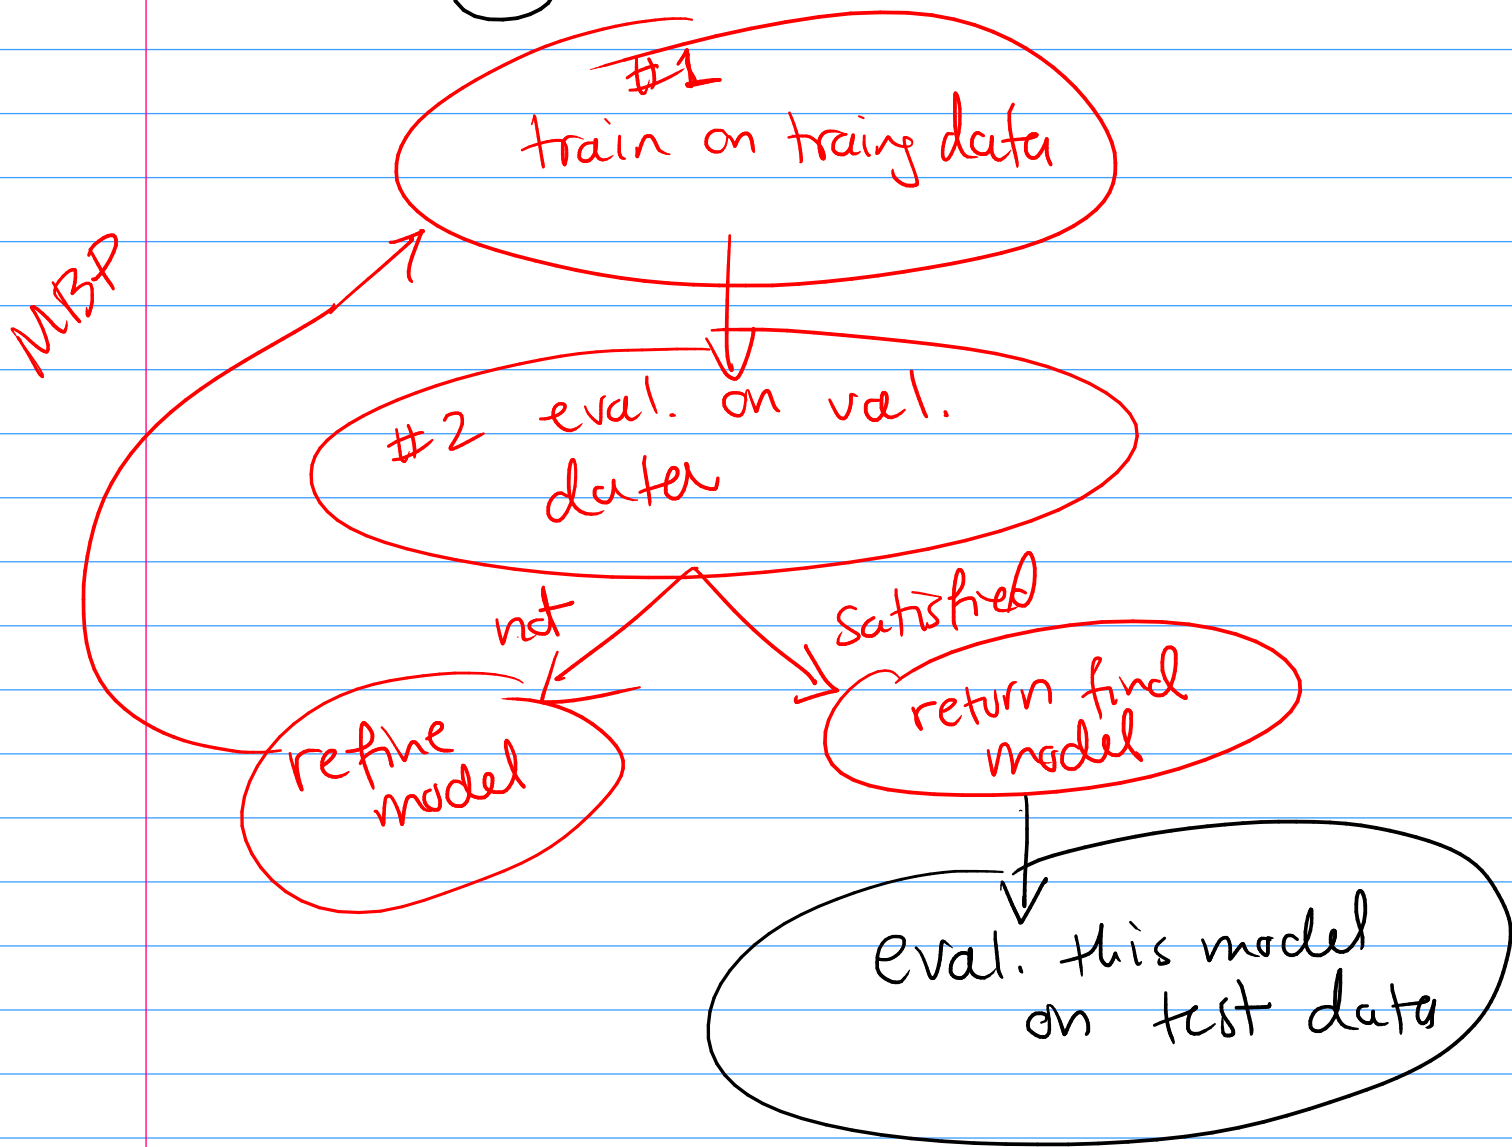 #1
train on traing data
MBP
#2 eval. on val.
data
not
satisfied
refine
model
return find
model
eval. this model
on test data